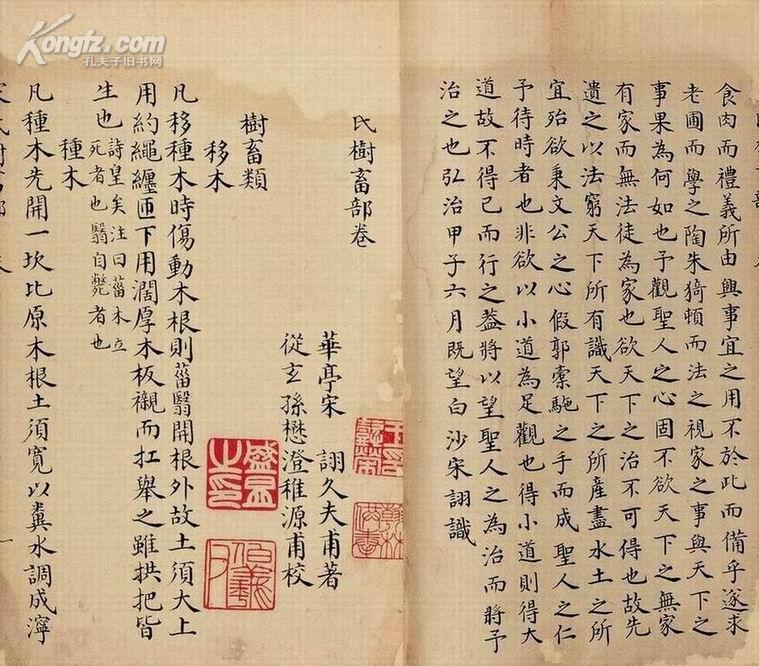 食肉而禮義所由興事宜之用不於此而備乎遂求
老圃而學之陶朱猗頓而法之視家之事與天下之
事果為何如也予觀聖人之心固不欲天下之無家
有家而無法徒為家也欲天下之治不可得也故先
遺之以法窮天下所有識天下之所產盡水土之所
宜殆欲秉文公之心假郭橐駞之手而成聖人之仁
予待時者也非欲以小道為足觀也得小道則得大
道故不得已而行之葢將以望聖人之為治而將予
治之也弘治甲子六月既望白沙宋詡識
氏樹畜部卷
華亭宋 詡久夫甫著
從玄孫懋澄稚源甫校
樹畜類
移木
凡移種木時傷動木根則菑翳開根外故土須大上
用約繩纏匝下用濶厚木板襯而扛舉之雖拱把皆
生也詩皇矣注曰菑木立死者也翳自斃者也
種木
凡種木先開一坎比原木根土須寬以糞水調成濘
Kongfz.com
孔夫子旧书网